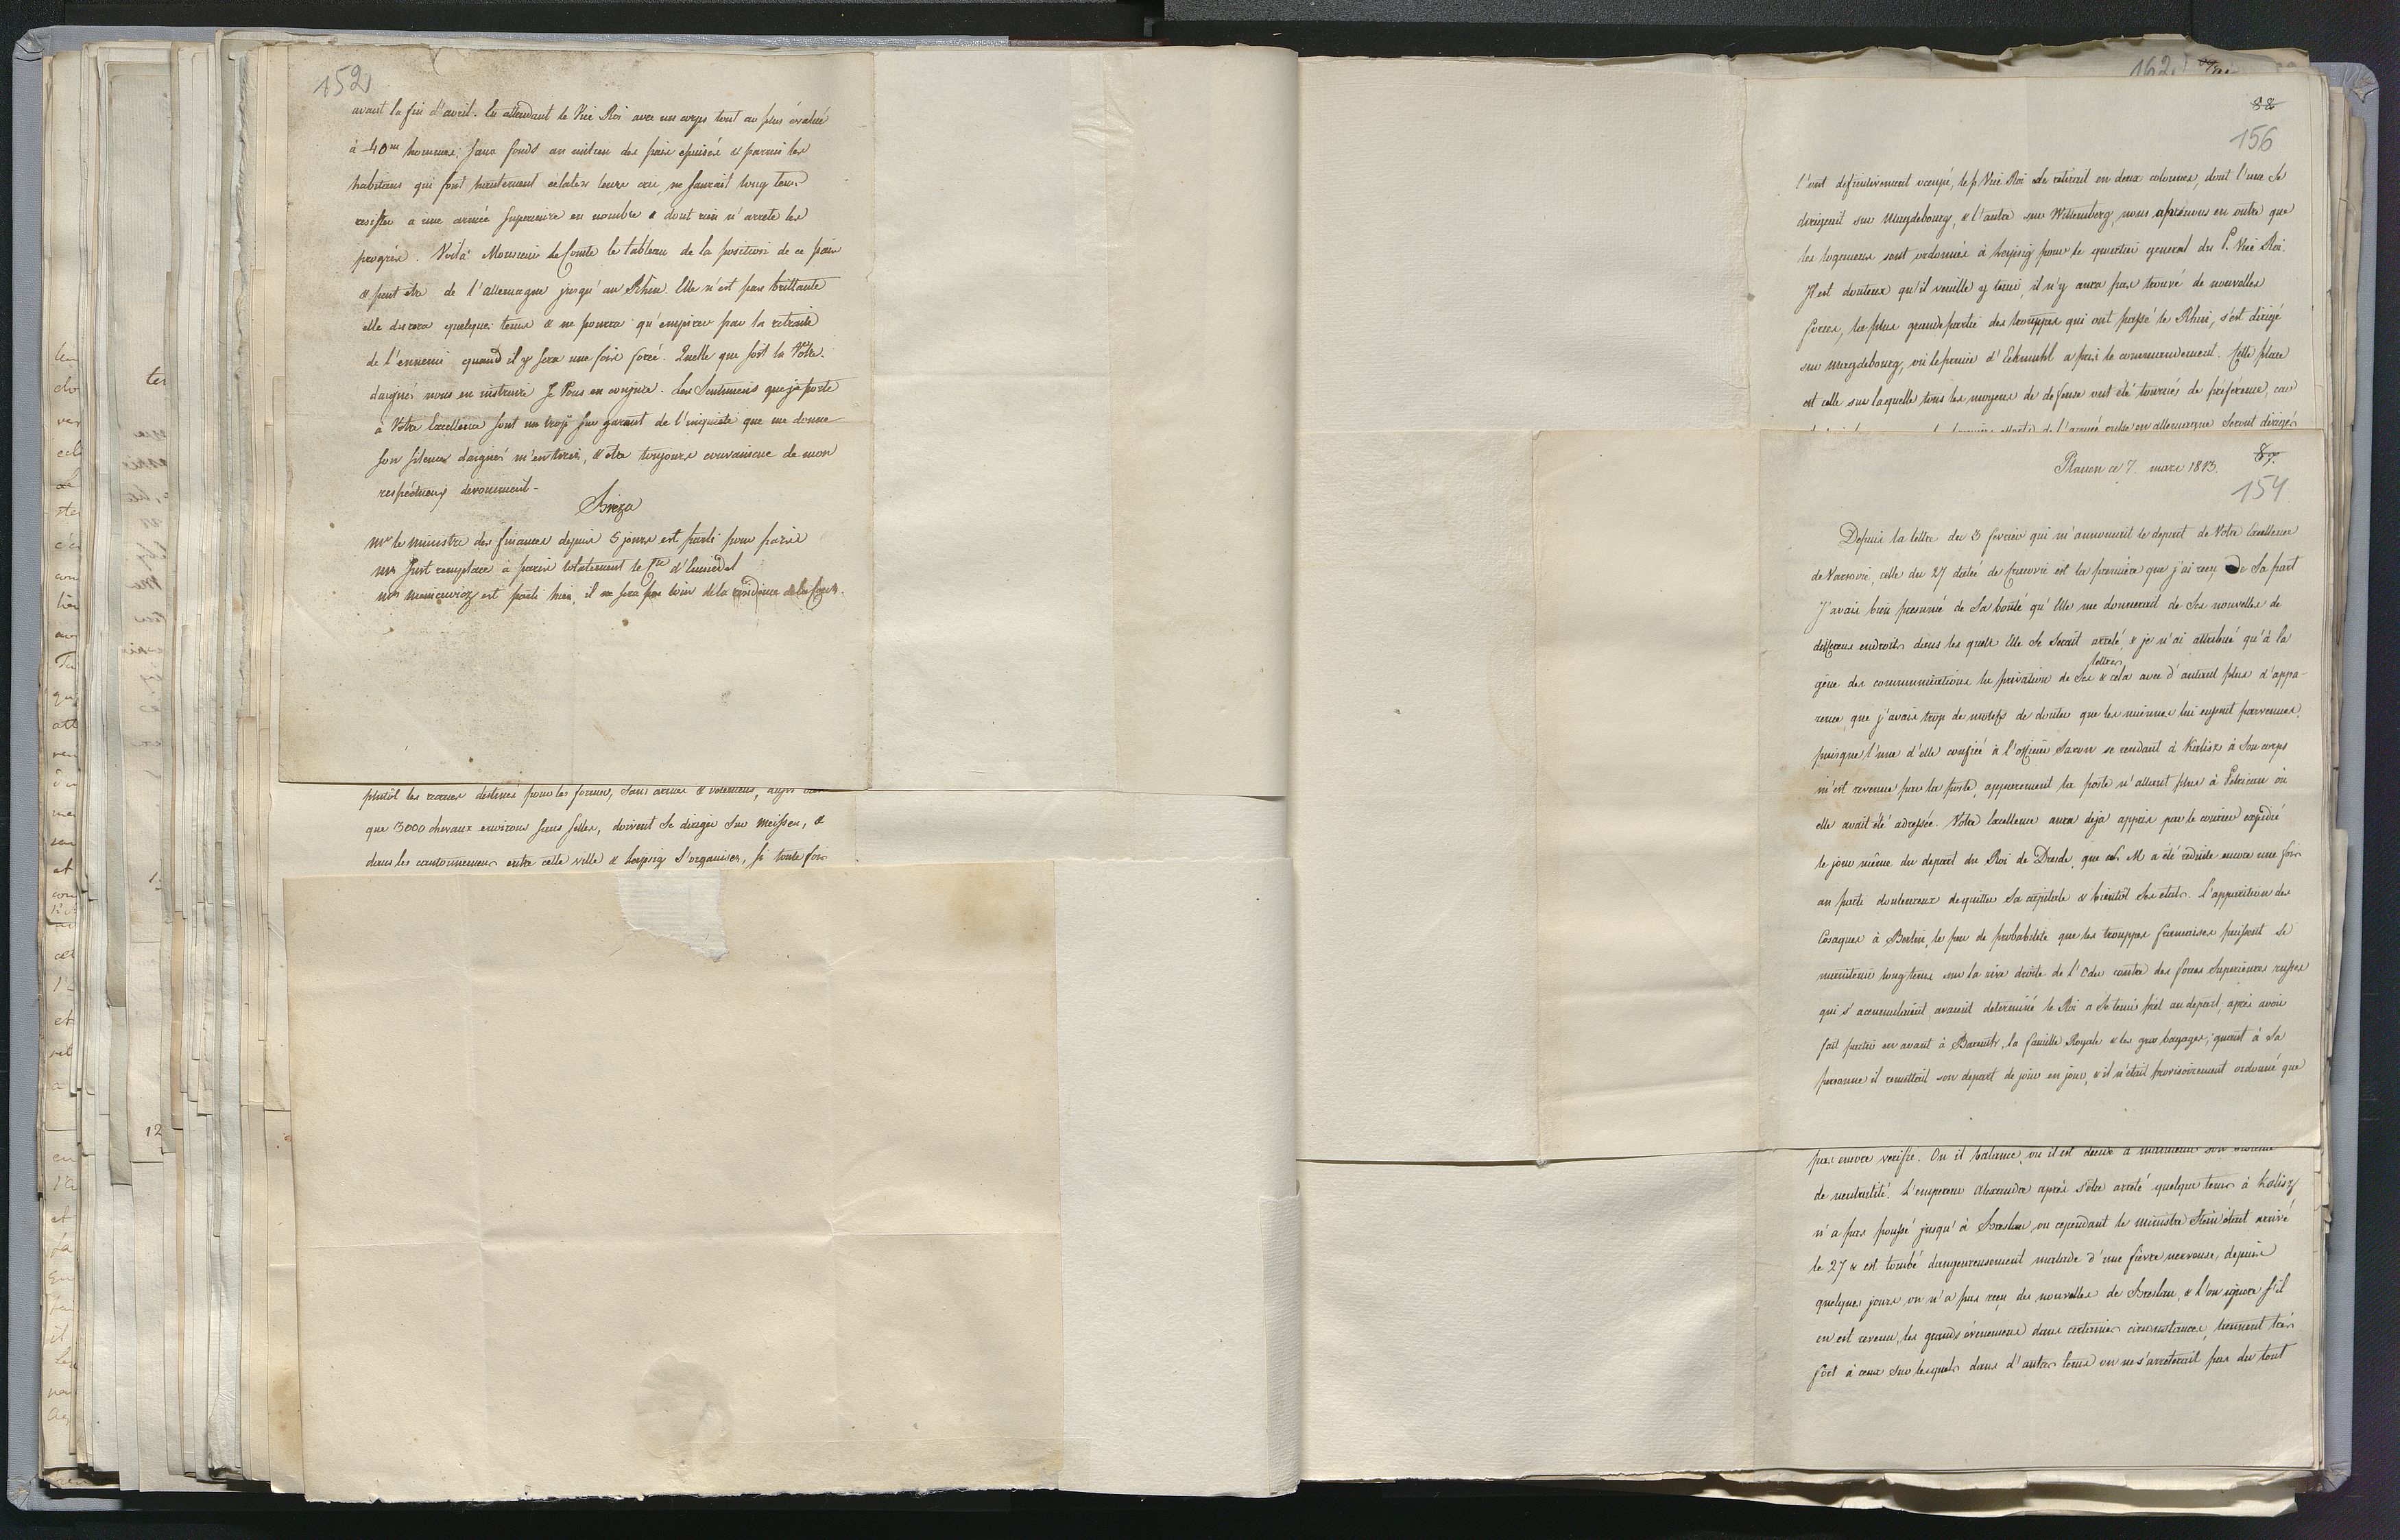 152
avant la fin d'avril. En attendant le Vice Roi avec un corps tout au plus évalué
à 40m hommes, sans fonds au milieu des pais epuisés & parmi les
habitans qui font hautement éclater leurs cris, ne saurait long tems
resister a une armée superieure en nombre & dont rien n'arrete les
progrès. Voilà Monsieur le Comte le tableau de la position de ce pais
& peut etre de l'allemagne jusqu'au Rhin. Elle n'est pas brillante
elle durera quelque tems & ne pourra qu'empirer par la retraite
de l'ennemi quand il y sera une fois forcé. Quelle que soit la Vôtre
daignés nous en instruire Je Vous en conjure. Les Sentimens que je porte
à Votre Excellence sont un trop sur garant de l'inquiete que me donne
son silence daignés m'en tirer, & etre toujours convaincue de mon
respectueux devouement-
Breza
Mr le ministre des finances depuis 5 jours est parti pour paris
Mr Just remplace à paris totalement le Cte d'Einsiedel
Mr Niemcewicz est parti hier, il ne sera pas loin de la residence de la Cour.
plutôt les recrues destinés pour les former, sans armes & vetemens,
que 3000 chevaux environs sans selles, doivent se diriger sur Meissen, &
dans les cantonnemens entre cette ville & Leipsig s'organiser, si toute fois
162
88
156
l'ont definitivement occupé, le p. Vice Roi se retirait en deux colonnes, dont l'une se
dirigeait sur Magdebourg, & l'autre sur Wittemberg, nous aprenons en outre que
les logemens sont ordonnés à Leipsig pour le quartier general du P. Vice Roi.
Il est douteux qu'il veuille y tenir, il n'y aura pas trouvé de nouvelles
forces, la plus grande partie des trouppes qui ont passé le Rhin, s'est dirigé
sur Magdebourg, où le prince d'Eckmuhl a pris le commandement. Cette place
est celle sur laquelle tous les moyens de defense ont été tournés de préférence, car
de l'armée russe en allemagne seront dirigés
Plauen ce 7. mars 1813.
87
154
Depuis la lettre du 3 fevrier qui m'annoncait le depart de Votre Excellence
de Varsovie, celle du 27 datée de Cracovie est la première que j'ai reçu de sa part
J'avais bien presumé de Sa bonté qu'Elle me donnerait de Ses nouvelles de
differens endroits dans les quels Elle se serait arreté, & je n'ai attribué qu'à la
gêne des communications la privation de Ses lettres & cela avec d'autant plus d'appa-
rence, que j'avais trop de motifs de douter que les miennes lui eussent parvenues,
puisque l'une d'elle confiée à l'officier Saxon se rendant à Kalisz à son corps
m'est revenue par la poste, apparement la poste n'allant plus à Petricau où
elle avait été adressée. Votre Excellence aura deja appris par le courier expedié
le jour même du depart du Roi de Dresde, que S. M a été reduite encore une fois
au parti douloureux de quitter sa capitale & bientôt ses etats. L'apparition des
Cosaques à Berlin, le peu de probabilité que les trouppes francaises puissent se
maintenir longtems sur la rive droite de l'Oder contre des forces superieures russes
qui s'accumulaient, avaient determiné le Roi a se tenir prêt au depart, après avoir
fait partir en avant à Bareuth, la famille Royale & les gros bagages; quant à sa
personne il remettait son depart de jour en jour, & il n'était provisoirement ordonné que
pas encore verifié. Ou il balance, ou il est decidé a maintenir son
de neutralité. L'empereur Alexandre après s'être arreté quelque tems à Kalisz
n'a pas poussé jusqu'à Breslau ou cependant le ministre Stein était arrivé
le 27 & est tombé dangereusement malade d'une fièvre nerveuse, depuis
quelques jours on n'a pas reçu des nouvelles de Breslau, & l'on ignore s'il
en est revenu, les grands evenemens dans certaines circonstances, tiennent très
fort à ceux sur lesquels dans d'autres tems on ne s'arreterait pas du tout